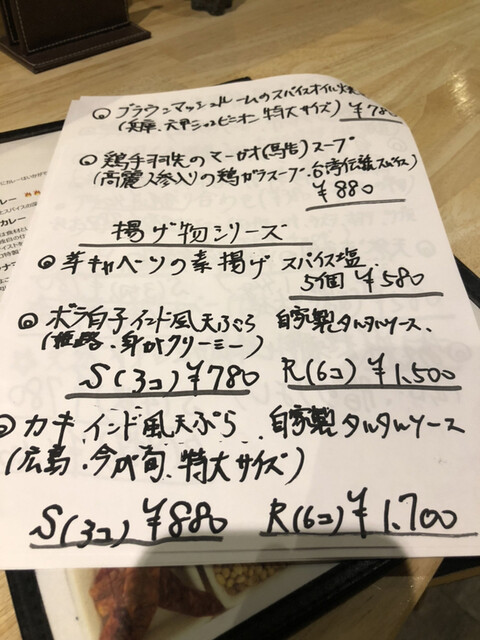 ブラウンマッシュルームのスパイスオイル焼
(兵庫、六甲シャンピニオン 特大サイズ) ¥780
鶏手羽先のマーガオ(馬告)スープ
(高麗人参入)の鶏ガラスープ、台湾伝統スパイス
¥880
揚げ物シリーズ
芽キャベツの素揚げ スパイス塩、
5個 ¥580
ボラ白子インド風天ぷら 自家製タルタルソース、
(姫路・身がクリーミー)
S(3コ) ¥780 R(6コ) ¥1,500
カキ インド風天ぷら、自家製タルタルソース
(広島・今が旬、特大サイズ)
S(3コ) ¥880 R(6コ) ¥1,700
カレー